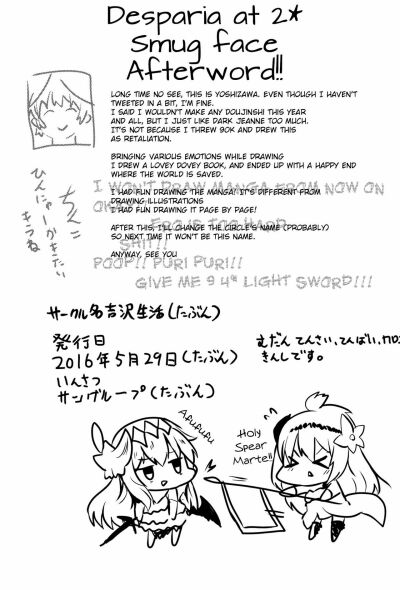 Desparia at 2*
Smug face
Afterword!!
LONG TIME NO SEE, THIS IS YOSHIZAWA. EVEN THOUGH I HAVEN'T
TWEETED IN A BIT, I'M FINE.
I SAID I WOULDN'T MAKE ANY DOUJINSHI THIS YEAR
AND ALL, BUT I JUST LIKE DARK JEANNE TOO MUCH.
IT'S NOT BECAUSE I THREW 90K AND DREW THIS
AS RETALIATION.
BRINGING VARIOUS EMOTIONS WHILE DRAWING
I DREW A LOVEY DOVEY BOOK, AND ENDED UP WITH A HAPPY END
WHERE THE WORLD IS SAVED.
I WON'T DRAW MANGA FROM NOW ON
I HAD FUN DRAWING THE MANGA! IT'S DIFFERENT FROM
DRAWING ILLUSTRATIONS
I HAD FUN DRAWING IT PAGE BY PAGE!
IS TOO HARD
AFTER THIS, I'LL CHANGE THE CIRCLE'S NAME (PROBABLY)
SO NEXT TIME IT WON'T BE THIS NAME.
SHIT!!
ANYWAY, SEE YOU
POOP!! PURI PURI!!
GIVE ME 9 4* LIGHT SWORD!!!
ちんこ
サークル名吉沢生活(たぶん)
発行日
2016年5月29日(たぶん)
いんさつ
サングループ(たぶん)
むだん てんさい、てんばい、
きんしです。
Afufufu
Holy
Spear
Marte!!